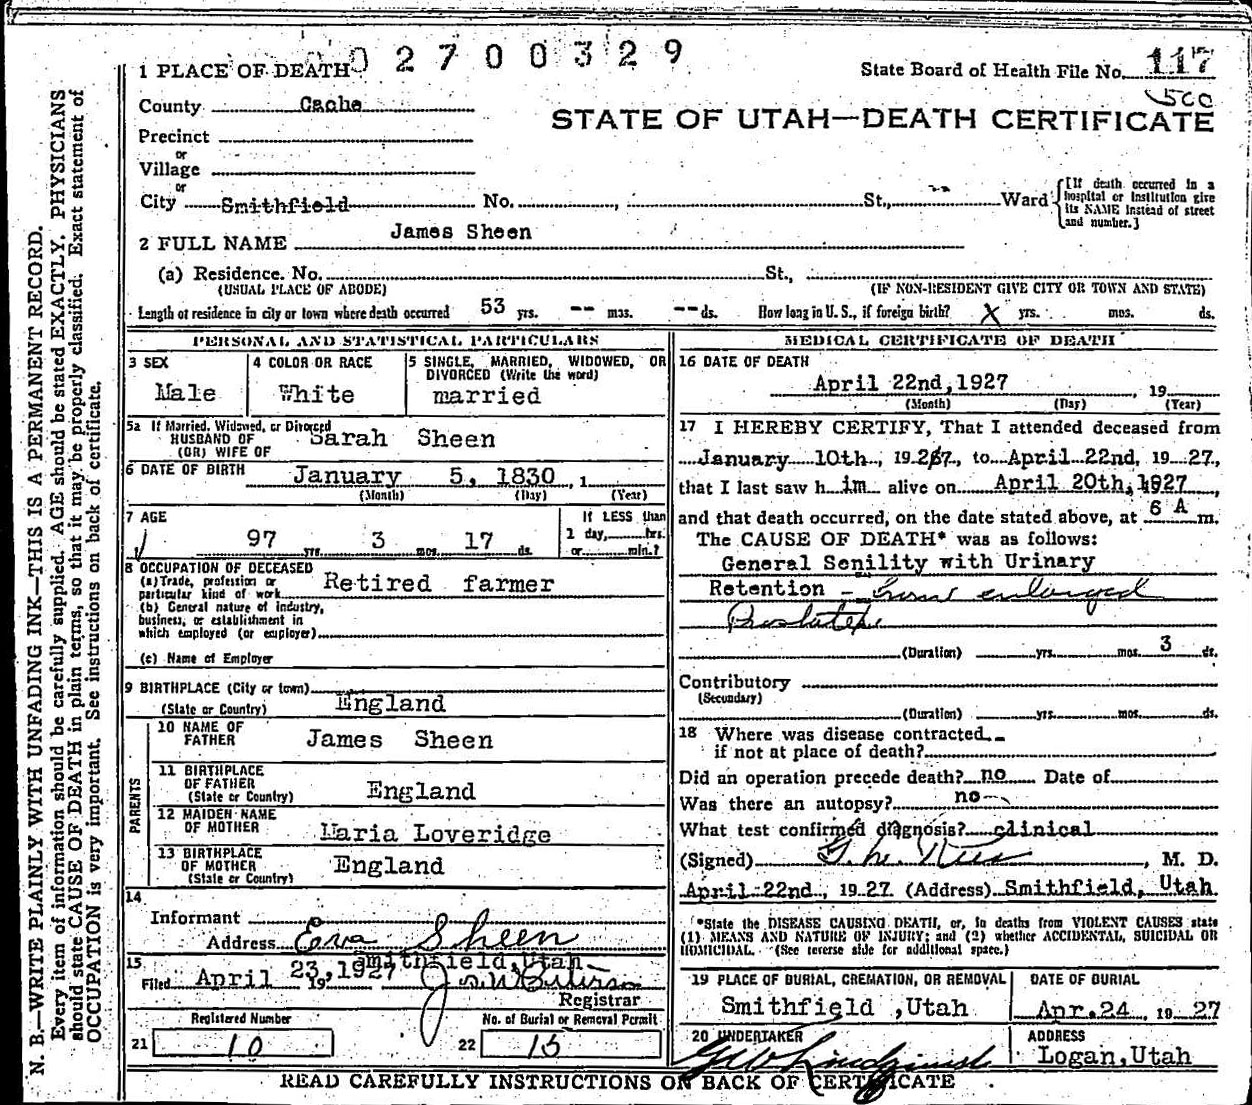 02700329
1 PLACE OF DEATH
State Board of Health File No. 117
500
County Cache
STATE OF UTAH—DEATH CERTIFICATE
Precinct
or
Village
or
City Smithfield No. , St., -- Ward
[If death occurred in a hospital or institution give its NAME instead of street and number.]
2 FULL NAME James Sheen
(a) Residence. No. St.,
(USUAL PLACE OF ABODE) (IF NON-RESIDENT GIVE CITY OR TOWN AND STATE)
Length of residence in city or town where death occurred 53 yrs. -- mos. -- ds. How long in U. S., if foreign birth? X yrs. mos. ds.
PERSONAL AND STATISTICAL PARTICULARS
3 SEX
Male
4 COLOR OR RACE
White
5 SINGLE, MARRIED, WIDOWED, OR DIVORCED (Write the word)
married
5a If Married, Widowed, or Divorced
HUSBAND OF Sarah Sheen
(OR) WIFE OF
6 DATE OF BIRTH January 5, 1830, 1
(Month) (Day) (Year)
7 AGE
97 yrs. 3 mos. 17 ds.
If LESS than
1 day, hrs.
or min.?
8 OCCUPATION OF DECEASED
(a) Trade, profession or particular kind of work Retired farmer
(b) General nature of industry,
business, or establishment in
which employed (or employer)
(c) Name of Employer
9 BIRTHPLACE (City or town)
(State or Country) England
PARENTS
10 NAME OF FATHER James Sheen
11 BIRTHPLACE OF FATHER
(State or Country) England
12 MAIDEN NAME OF MOTHER Maria Loveridge
13 BIRTHPLACE OF MOTHER
(State or Country) England
14
Informant
Address Eva Sheen
Smithfield, Utah
15
Filed April 23, 1927 19
Registrar
Registered Number
21 10
No. of Burial or Removal Permit
22 15
MEDICAL CERTIFICATE OF DEATH
16 DATE OF DEATH
April 22nd, 1927 , 19
(Month) (Day) (Year)
17 I HEREBY CERTIFY, That I attended deceased from
January 10th, 1927, to April 22nd, 19 27,
that I last saw h im alive on April 20th, 1927,
and that death occurred, on the date stated above, at 6 A m.
The CAUSE OF DEATH* was as follows:
General Senility with Urinary
Retention - from enlarged
Prostate
(Duration) yrs. mos. 3 ds.
Contributory
(Secondary)
(Duration) yrs. mos. ds.
18 Where was disease contracted --
if not at place of death?
Did an operation precede death? no Date of
Was there an autopsy? no
What test confirmed diagnosis? clinical
(Signed) , M. D.
April 22nd, 19 27 (Address) Smithfield, Utah
*State the DISEASE CAUSING DEATH, or, in deaths from VIOLENT CAUSES state
(1) MEANS AND NATURE OF INJURY; and (2) whether ACCIDENTAL, SUICIDAL OR
HOMICIDAL. (See reverse side for additional space.)
19 PLACE OF BURIAL, CREMATION, OR REMOVAL
Smithfield ,Utah
DATE OF BURIAL
Apr. 24, 19 27
20 UNDERTAKER
ADDRESS
Logan, Utah
READ CAREFULLY INSTRUCTIONS ON BACK OF CERTIFICATE
N. B.—WRITE PLAINLY WITH UNFADING INK—THIS IS A PERMANENT RECORD.
Every item of information should be carefully supplied. AGE should be stated EXACTLY. PHYSICIANS
should state CAUSE OF DEATH in plain terms, so that it may be properly classified. Exact statement of
OCCUPATION is very important. See instructions on back of certificate.